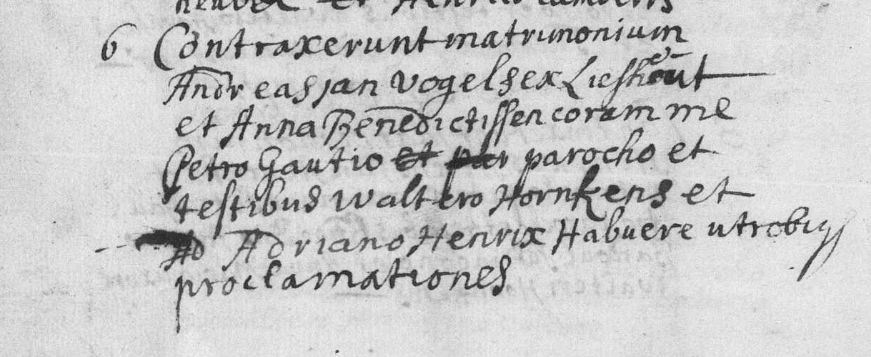 et Henrici
6 Contraxerunt matrimonium
Andreas jan vogels ex Lieshout
et Anna Benedictissen coram me
Petro Gautio et par parocho et
testibus waltero Hornkens et
Ad Adriano Henrix Habuere utrobiq
proclamationes